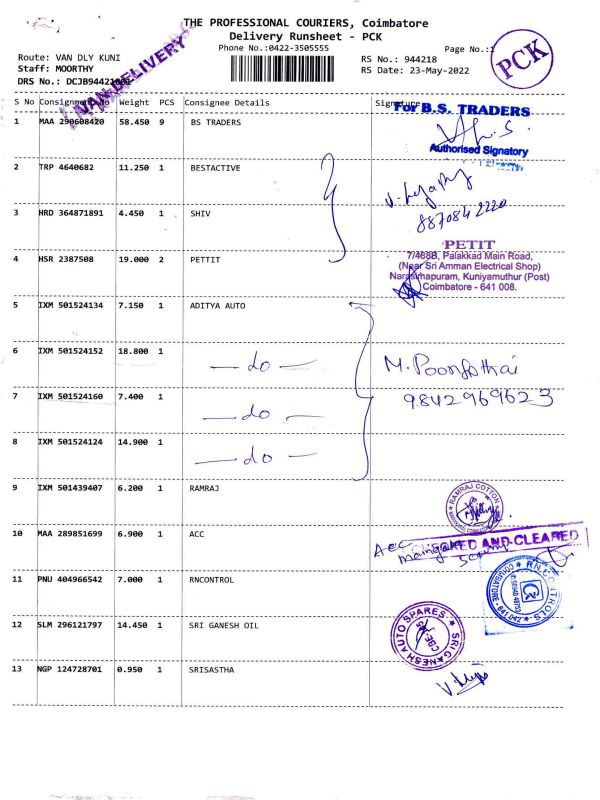 THE PROFESSIONAL COURIERS, Coimbatore
Delivery Runsheet - PCK
Phone No.:0422-3505555
Page No.:1
PCK
Route: VAN DLY KUNI
Staff: MOORTHY
DRS No.: DCJB94421801
RS No.: 944218
RS Date: 23-May-2022
VAN DELIVERY
S No Consignment No Weight PCS Consignee Details Signature
For B.S. TRADERS
1 MAA 290608420 58.450 9 BS TRADERS
Authorised Signatory
2 TRP 4640682 11.250 1 BESTACTIVE
8870842220
3 HRD 364871891 4.450 1 SHIV
PETIT
4 HSR 2387508 19.000 2 PETTIT
7/468B, Palakkad Main Road,
(Near Sri Amman Electrical Shop)
Narasimhapuram, Kuniyamuthur (Post)
Coimbatore - 641 008.
5 IXM 501524134 7.150 1 ADITYA AUTO
6 IXM 501524152 18.800 1 — do —
M. Poonfothai
9842969623
7 IXM 501524160 7.400 1 — do —
8 IXM 501524124 14.900 1 — do —
9 IXM 501439407 6.200 1 RAMRAJ
RAMRAJ COTTON
10 MAA 289851699 6.900 1 ACC
ACC
CHECKED AND CLEARED
11 PNU 404966542 7.000 1 RNCONTROL
R.N. CONTROLS
COIMBATORE - 641 042
12 SLM 296121797 14.450 1 SRI GANESH OIL
SRI GANESH AUTO SPARES
CBE-45
13 NGP 124728701 0.950 1 SRISASTHA